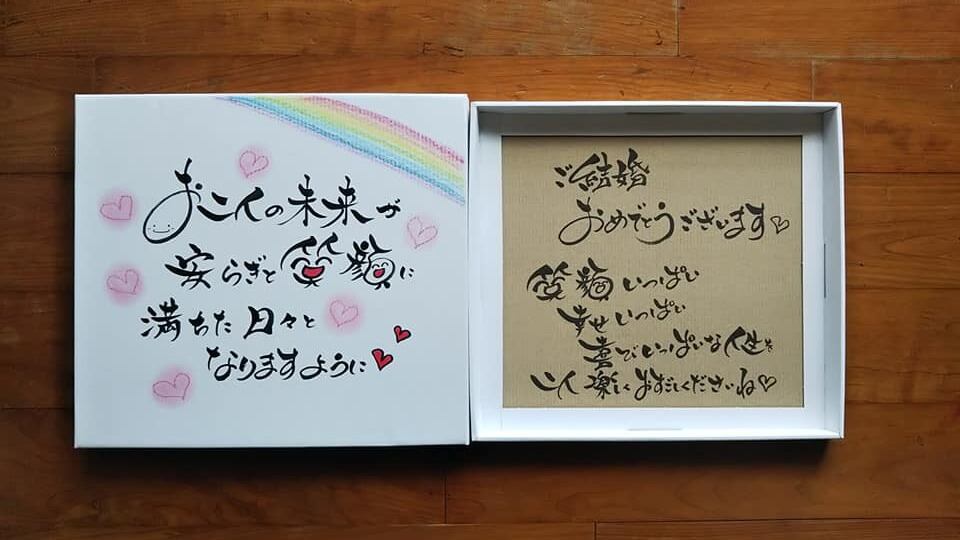 お二人の未来が
安らぎと笑顔に
満ちた日々と
なりますように
ご結婚
おめでとうございます♡
笑顔いっぱい
幸せいっぱい
喜びいっぱいな人生を
二人楽しくおすごしくださいね♡